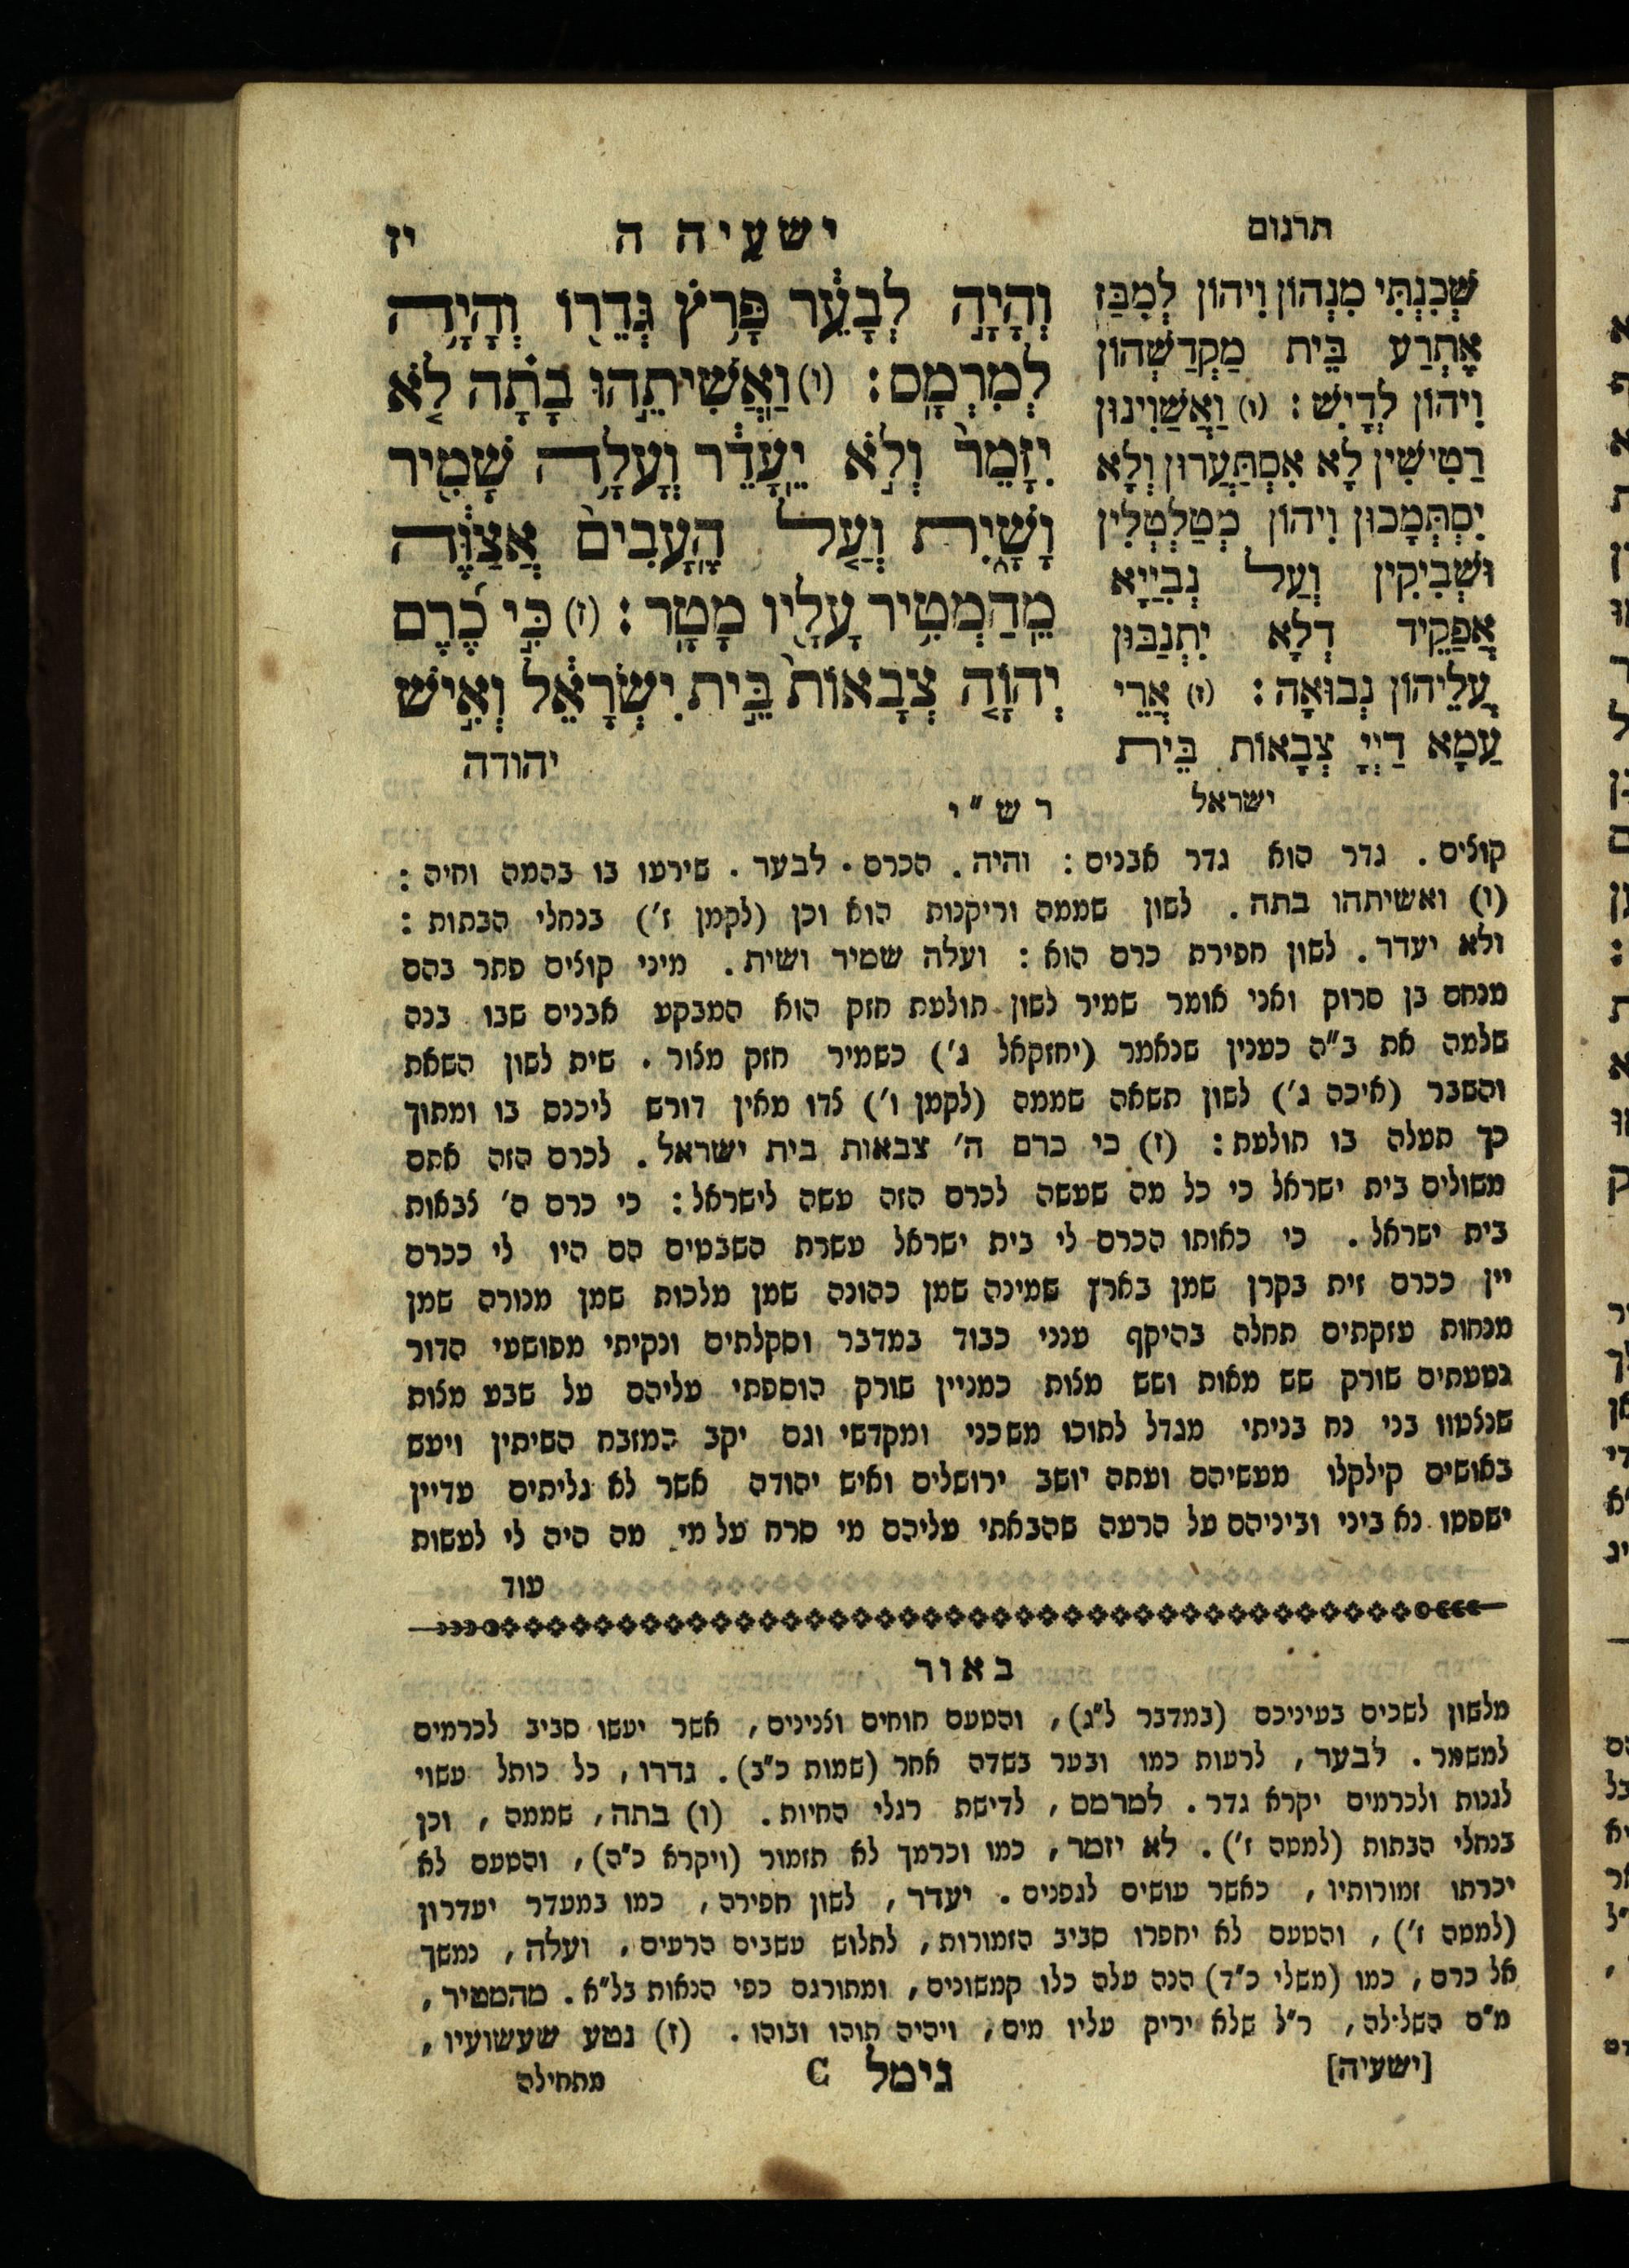 תרגום
ישעיה ה
יז
שְׁכִנְתִּי מִנְהוֹן וִיהוֹן לְמִבַּז
אָתְרַע בֵּית מַקְדַשְׁהוֹן
וִיהוֹן לְדָיִשׁ: (ו) וַאֲשַׁוִינוּן
רַטִישִׁין לָא אִסְתַּעֲרוּן וְלָא
יִסְתְּמָכוּן וִיהוֹן מְטַלְטְלִין
וּשְׁבִיקִין וְעַל נְבִיַיָא
אֲפַקֵיד דְלָא יִתְנַבּוּן
עֲלֵיהוֹן נְבוּאָה: (ז) אֲרֵי
עַמָא דַיְיָ צְבָאוֹת בֵּית
ישראל
וְהָיָ֣ה לְבָעֵ֔ר פָּרֹ֥ץ גְּדֵר֖וֹ וְהָיָ֥ה
לְמִרְמָֽס: (ו) וַאֲשִׁיתֵ֣הוּ בָתָ֗ה לֹ֤א
יִזָּמֵר֙ וְלֹ֣א יֵֽעָדֵ֔ר וְעָלָ֥ה שָׁמִ֖יר
וָשָׁ֑יִת וְעַ֤ל הֶֽעָבִים֙ אֲצַוֶּ֔ה
מֵהַמְטִ֥יר עָלָ֖יו מָטָֽר: (ז) כִּ֣י כֶ֜רֶם
יְהוָ֤ה צְבָאוֹת֙ בֵּ֣ית יִשְׂרָאֵ֔ל וְאִ֣ישׁ
יהודה
רש"י
קוצים. גדר הוא גדר אבנים: והיה. הכרם. לבער. שירעו בו בהמה וחיה:
(ו) ואשיתהו בתה. לשון שממה וריקנות הוא וכן (לקמן ז') בנחלי הבתות:
ולא יעדר. לשון חפירת כרם הוא: ועלה שמיר ושית. מיני קוצים פתר בהם
מנחם בן סרוק ואני אומר שמיר לשון תולעת חזק הוא המבקע אבנים שבו בנה
שלמה את ב"ה כענין שנאמר (יחזקאל ג') כשמיר חזק מצור. שית לשון השאת
והשבר (איכה ג') לשון תשאה שממה (לקמן ו') צדו מאין דורש ליכנס בו ומתוך
כך תעלה בו תולעת: (ז) כי כרם ה' צבאות בית ישראל. לכרם הזה אתם
משולים בית ישראל כי כל מה שעשה לכרם הזה עשה לישראל: כי כרם ה' צבאות
בית ישראל. כי כאותו הכרם לי בית ישראל עשרת השבטים הם היו לי ככרם
יין ככרם זית בקרן שמן בארץ שמינה שמן כהונה שמן מלכות שמן מנורה שמן
מנחות עזקתים תחלה בהיקף ענני כבוד במדבר וסקלתים ונקיתי מפושעי הדור
נטעתים שורק שש מאות ושש מצות כמניין שורק הוספתי עליהם על שבע מצות
שנצטוו בני נח בניתי מגדל לתוכו משכני ומקדשי וגם יקב המזבח השיתין ויעש
באושים קילקלו מעשיהם ועתה יושב ירושלים ואיש יהודה אשר לא גליתים עדיין
ישפטו נא ביני וביניהם על הרעה שהבאתי עליהם מי סרח על מי מה היה לי לעשות
עוד
באור
מלשון לשכים בעיניכם (במדבר ל"ג), והטעם חוחים וצנינים, אשר יעשו סביב לכרמים
למשמר. לבער, לרעות כמו ובער בשדה אחר (שמות כ"ב). גדרו, כל כותל עשוי
לגנות ולכרמים יקרא גדר. למרמס, לדישת רגלי החיות. (ו) בתה, שממה, וכן
בנחלי הבתות (למטה ז'). לא יזמר, כמו וכרמך לא תזמור (ויקרא כ"ה), והטעם לא
יכרתו זמורותיו, כאשר עושים לגפנים. יעדר, לשון חפירה, כמו במעדר יעדרון
(למטה ז'), והטעם לא יחפרו סביב הזמורות, לתלוש עשבים הרעים, ועלה, נמשך
אל כרם, כמו (משלי כ"ד) הנה עלה כלו קמשונים, ומתורגם כפי הנאות בל"א. מהמטיר,
מ"ם השלילה, ר"ל שלא יריק עליו מים, ויהיה תוהו ובוהו. (ז) נטע שעשועיו,
[ישעיה]
גימל C
מתחילה